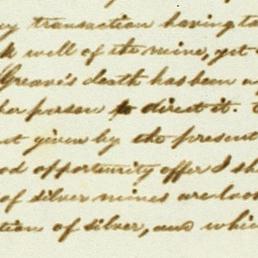 ny transaction having ta
k well of the mine, yet
Greave's death has been a
her person to direct it.
ut given by the present
od opportunity offer I sh
of silver mines are loo
tion of silver, and whi